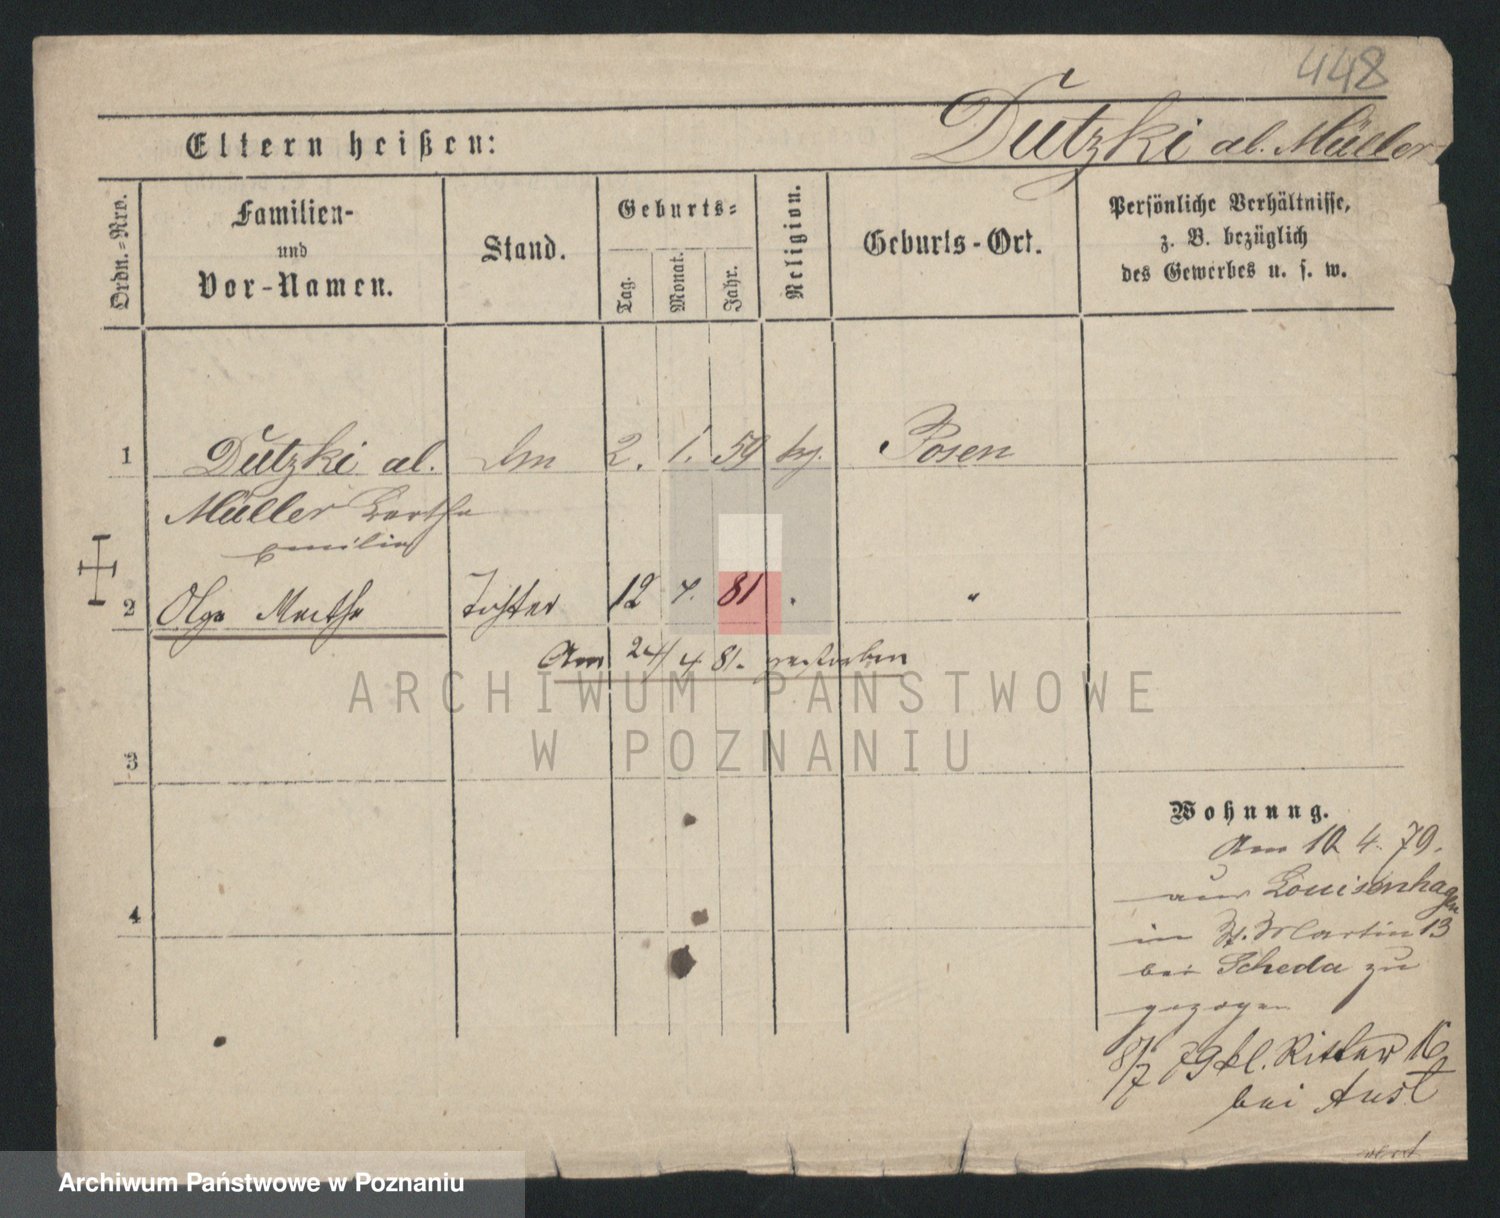 448
Eltern heißen:
Dutzki al. Müller
Ordn.=Nro.
Familien-
und
Vor-Namen.
Stand.
Geburts=
Tag.
Monat.
Jahr.
Religion.
Geburts-Ort.
Persönliche Verhältnisse,
z. B. bezüglich
des Gewerbes u. s. w.
1 Dutzki al. 2. 1. 59 Posen
Müller Bertha
Emilie
2 Olga Martha Tochter 12 4. 81 "
Am 24/4 81. verstorben
3
4
Wohnung.
Am 10 4. 79.
aus Louisenhagen
in St. Martin 13
bei Scheda zu
gezogen
8/7 79 kl. Ritter 16
bei Aust
ARCHIWUM PAŃSTWOWE
W POZNANIU
Archiwum Państwowe w Poznaniu